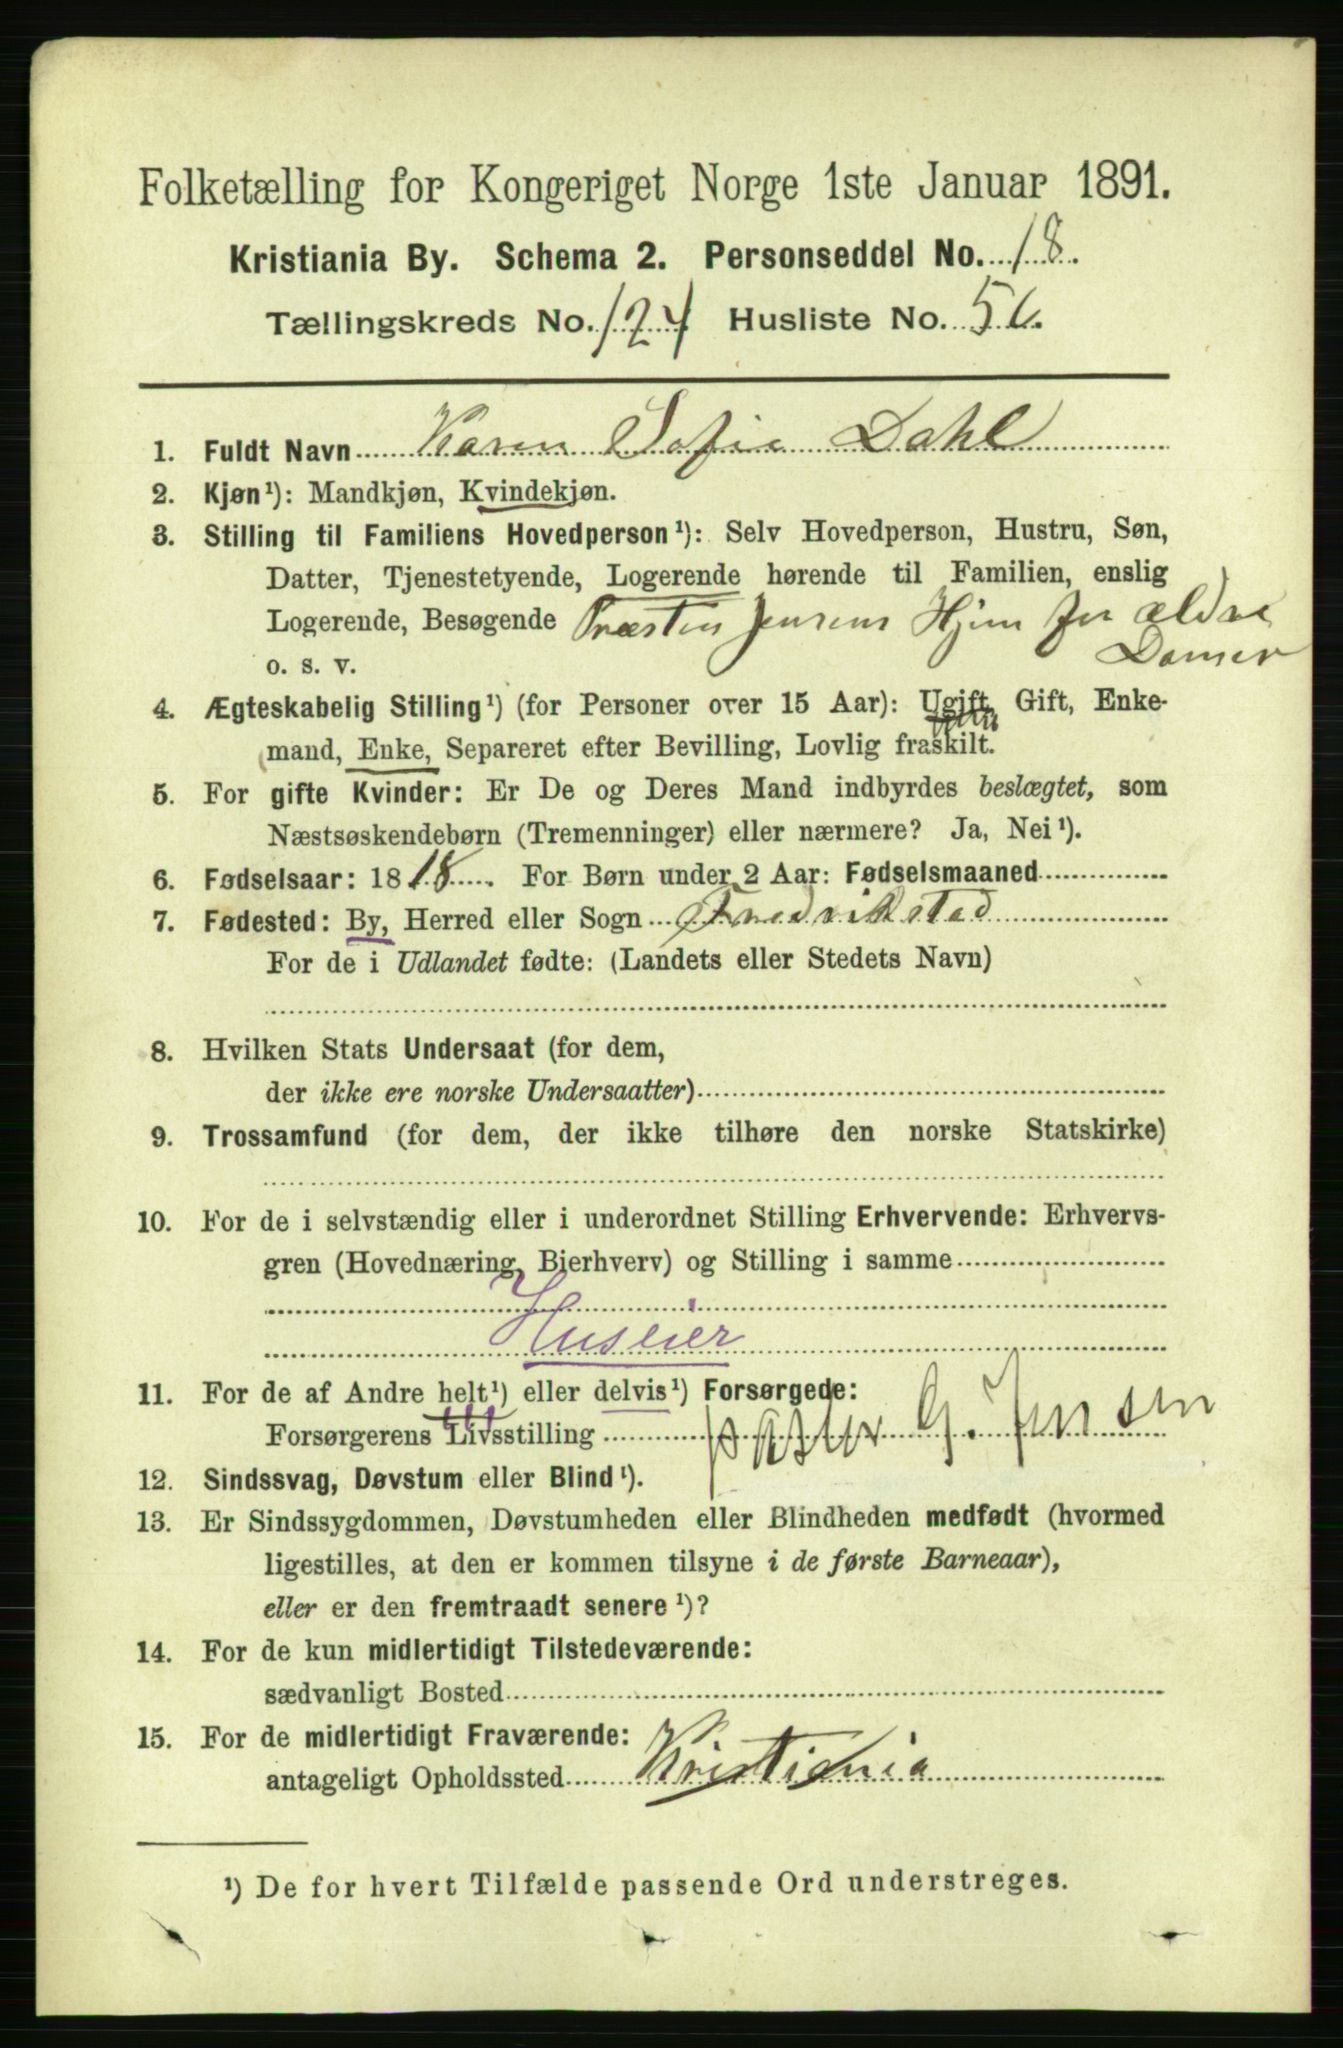 Folketælling for Kongeriget Norge 1ste Januar 1891.
Kristiania By. Schema 2. Personseddel No. 18.
Tællingskreds No. 124 Husliste No. 56.
1. Fuldt Navn Karen Sofie Dahl
2. Kjøn¹): Mandkjøn, Kvindekjøn.
3. Stilling til Familiens Hovedperson¹): Selv Hovedperson, Hustru, Søn,
Datter, Tjenestetyende, Logerende hørende til Familien, enslig
Logerende, Besøgende Præsten Jensens Hjem for ældre
o. s. v. Damer
4. Ægteskabelig Stilling¹) (for Personer over 15 Aar): Ugift, Gift, Enke-
mand, Enke, Separeret efter Bevilling, Lovlig fraskilt.
5. For gifte Kvinder: Er De og Deres Mand indbyrdes beslægtet, som
Næstsøskendebørn (Tremenninger) eller nærmere? Ja, Nei¹).
6. Fødselsaar: 1818. For Børn under 2 Aar: Fødselsmaaned
7. Fødested: By, Herred eller Sogn Fredrikstad
For de i Udlandet fødte: (Landets eller Stedets Navn)
8. Hvilken Stats Undersaat (for dem,
der ikke ere norske Undersaatter)
9. Trossamfund (for dem, der ikke tilhøre den norske Statskirke)
10. For de i selvstændig eller i underordnet Stilling Erhvervende: Erhvervs-
gren (Hovednæring, Bierhverv) og Stilling i samme
Huseier
11. For de af Andre helt¹) eller delvis¹) Forsørgede:
Forsørgerens Livsstilling Pastor G. Jensen
12. Sindssvag, Døvstum eller Blind¹).
13. Er Sindssygdommen, Døvstumheden eller Blindheden medfødt (hvormed
ligestilles, at den er kommen tilsyne i de første Barneaar),
eller er den fremtraadt senere¹)?
14. For de kun midlertidigt Tilstedeværende:
sædvanligt Bosted
15. For de midlertidigt Fraværende:
antageligt Opholdssted Kristiania
¹) De for hvert Tilfælde passende Ord understreges.